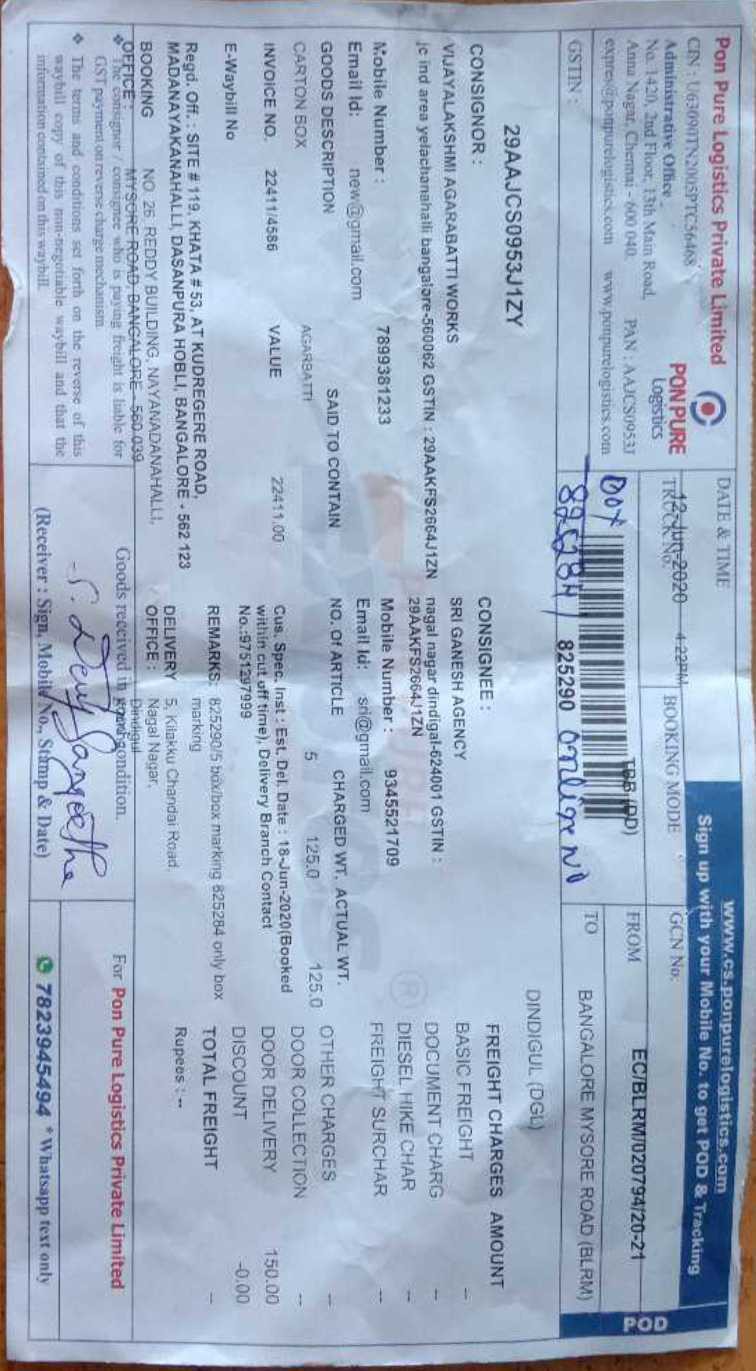 Pon Pure Logistics Private Limited
CIN : U63090TN2005PTC56468
Administrative Office
No. 1420, 2nd Floor, 13th Main Road,
Anna Nagar, Chennai - 600 040. PAN : AAJCS0953J
expres@ponpurelogistics.com www.ponpurelogistics.com
PON PURE
Logistics
GSTIN :
29AAJCS0953J1ZY
DATE & TIME
12-Jun-2020 4:22PM
TRUCK No.
BOOKING MODE
TBB (DD)
www.cs.ponpurelogistics.com
Sign up with your Mobile No. to get POD & Tracking
GCN No:
EC/BLRM/020794/20-21
FROM
BANGALORE MYSORE ROAD (BLRM)
TO
DINDIGUL (DGL)
POD
825284 825290 only
CONSIGNOR :
VIJAYALAKSHMI AGARABATTI WORKS
jc ind area yelachanahalli bangalore-560062 GSTIN : 29AAKFS2664J1ZN
Mobile Number : 7899381233
Email Id: new@gmail.com
CONSIGNEE :
SRI GANESH AGENCY
nagal nagar dindigal-624001 GSTIN :
29AAKFS2664J1ZN
Mobile Number : 9345521709
Email Id: sri@gmail.com
GOODS DESCRIPTION SAID TO CONTAIN NO. Of ARTICLE CHARGED WT. ACTUAL WT.
CARTON BOX AGARBATTI 5 125.0 125.0
INVOICE NO. 22411/4586 VALUE 22411.00
E-Waybill No
Cus. Spec. Inst : Est. Del. Date : 18-Jun-2020(Booked
within cut off time), Delivery Branch Contact
No.:9751297999
REMARKS: 825290/5 box/box marking 825284 only box
marking
Regd. Off. : SITE # 119, KHATA # 53, AT KUDREGERE ROAD,
MADANAYAKANAHALLI, DASANPURA HOBLI, BANGALORE - 562 123
BOOKING OFFICE : NO. 26 REDDY BUILDING, NAYANADANAHALLI,
MYSORE ROAD, BANGALORE - 560 039
DELIVERY OFFICE : 5, Kilakku Chandai Road,
Nagal Nagar,
Dindigul
FREIGHT CHARGES AMOUNT
BASIC FREIGHT --
DOCUMENT CHARG --
DIESEL HIKE CHAR --
FREIGHT SURCHAR --
OTHER CHARGES
DOOR COLLECTION --
DOOR DELIVERY 150.00
DISCOUNT -0.00
TOTAL FREIGHT --
Rupees : --
❖ The consignor / consignee who is paying freight is liable for
GST payment on reverse charge mechanism.
❖ The terms and conditions set forth on the reverse of this
waybill copy of this non-negotiable waybill and that the
information contained on this waybill.
Goods received in good condition.
(Receiver : Sign, Mobile No., Stamp & Date)
For Pon Pure Logistics Private Limited
7823945494 * Whatsapp text only